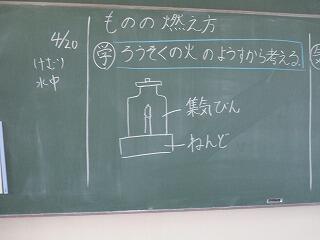 4/20
けむり
水中
ものの燃え方
学 ろうそくの火のようすから考える。
集気びん
ねんど